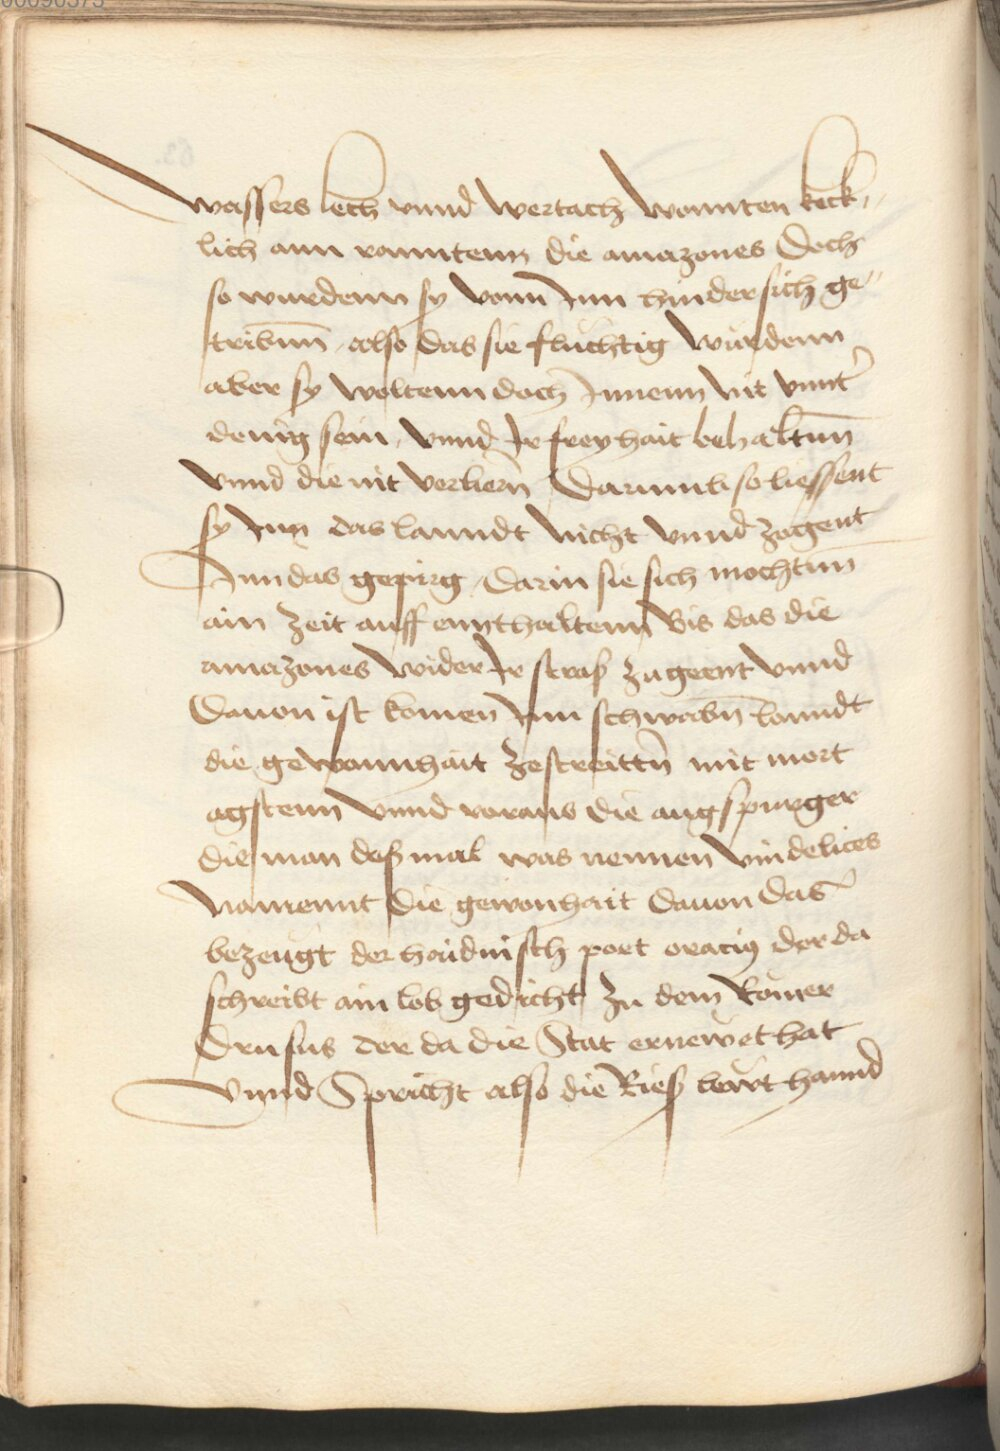 wassers lech vnnd wertach wonnten keck„
lich ann ranntenn die amazones Doch
so wurdenn sy vonn Inn hindersich ge„
tribn̄n also das sie flüchtig wurdenn
aber sy woltenn doch Innenn nit vnnt̄
denig sein, vnnd Ir freyhait behaltn̄n
vnnd die nit verliern̄ Darumb so liessent
sy Inn das lanndt nicht vnnd zogent
Inn das gepirg, darin sie sich mochtn̄n
ain zeit auff ennthaltenn bis das die
amazones wider Ir straß zugeent vnnd
Dauon ist komen Inn schwabn̄ lanndt
die gewonnhait zestreittn̄ mit mort
agstenn vnnd voraus die augspurger
die man deßmal was nennen vindelices
Namennt die gewonhait dauon das
bezeugt der haidnisch poet oracius der da
schreibt ain lob gedicht zu dem Römer
Drusus der da die Stat ernewet hat
Vnnd Spricht also die Rieß lewt hannd